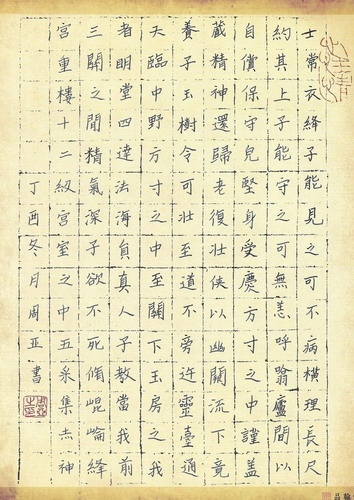 士常衣绛子能見之可不病横理長尺
約其上子能守之可無恙呼噏廬間以
自償保守皃堅身受慶方寸之中謹盖
藏精神還歸老復壯侠以幽闕流下竟
養子玉樹令可壮至道不旁迕靈臺通
天臨中野方寸之中至關下玉房之我
者明堂四達法海負真人子教當我前
三關之間精氣深子欲不死脩崐崘絳
宮重樓十二级宮室之中五采集赤神
丁酉冬月周亚書